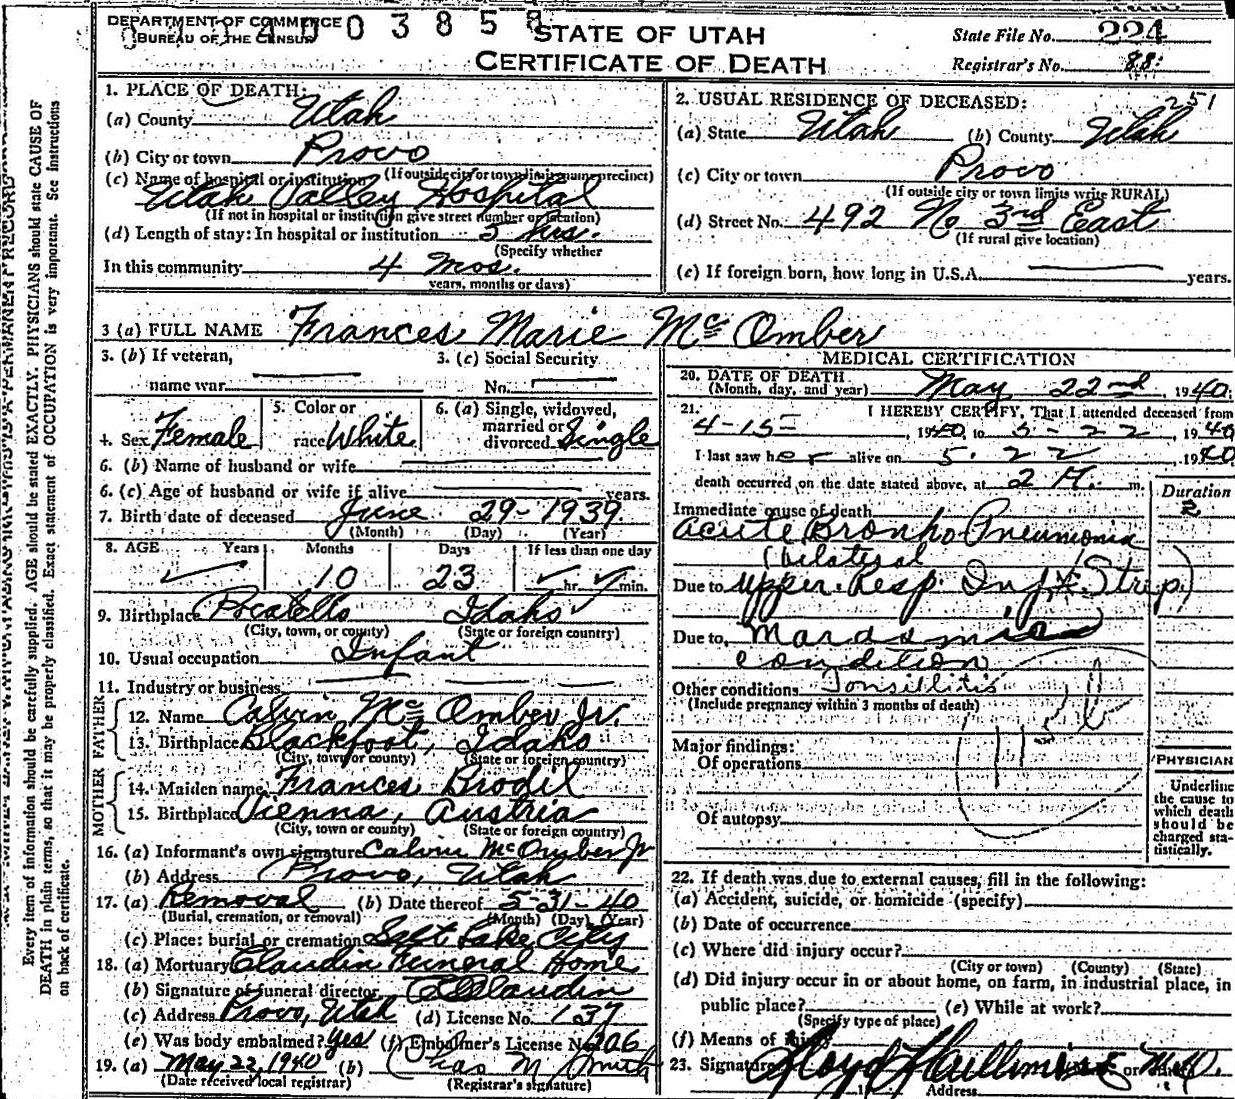 DEPARTMENT OF COMMERCE
BUREAU OF THE CENSUS
4003858
STATE OF UTAH
CERTIFICATE OF DEATH
State File No. 224
Registrar's No. 88
1. PLACE OF DEATH:
(a) County Utah
(b) City or town Provo
(If outside city or town limits name precinct)
(c) Name of hospital or institution
Utah Valley Hospital
(If not in hospital or institution give street number or location)
(d) Length of stay: In hospital or institution 5 hrs.
(Specify whether
In this community 4 mos.
years, months or days)
2. USUAL RESIDENCE OF DECEASED: 251
(a) State Utah (b) County Utah
(c) City or town Provo
(If outside city or town limits write RURAL)
(d) Street No. 492 No 3rd East
(If rural give location)
(e) If foreign born, how long in U.S.A. years.
3 (a) FULL NAME Frances Marie McOmber
3. (b) If veteran,
name war
3. (c) Social Security
No.
4. Sex Female
5. Color or
race White
6. (a) Single, widowed,
married or
divorced Single
6. (b) Name of husband or wife
6. (c) Age of husband or wife if alive years.
7. Birth date of deceased June 29 - 1939
(Month) (Day) (Year)
8. AGE Years Months Days If less than one day
10 23 hr. min.
9. Birthplace Pocatello Idaho
(City, town, or county) (State or foreign country)
10. Usual occupation Infant
11. Industry or business
FATHER
12. Name Calvin McOmber Jr.
13. Birthplace Blackfoot, Idaho
(City, town or county) (State or foreign country)
MOTHER
14. Maiden name Frances Brodil
15. Birthplace Vienna, Austria
(City, town or county) (State or foreign country)
16. (a) Informant's own signature Calvin McOmber Jr
(b) Address Provo, Utah
17. (a) Removal (b) Date thereof 5-31-40
(Burial, cremation, or removal) (Month) (Day) (Year)
(c) Place: burial or cremation Salt Lake City
18. (a) Mortuary Claudin Funeral Home
(b) Signature of funeral director Claudin
(c) Address Provo, Utah (d) License No. 137
(e) Was body embalmed? Yes (f) Embalmer's License No. 206
19. (a) May 22, 1940 (b) Chas M Smith
(Date received local registrar) (Registrar's signature)
MEDICAL CERTIFICATION
20. DATE OF DEATH
(Month, day, and year) May 22nd, 1940.
21. I HEREBY CERTIFY, That I attended deceased from
4-15-, 1940, to 5-22, 1940
I last saw her alive on 5.22, 1940
death occurred on the date stated above, at 2 A. m.
Duration
2
Immediate cause of death
Acute Bronho Pneumonia
(bilateral
Due to upper Resp. Inf (Strep.)
Due to
condition
Other conditions Tonsillitis
(Include pregnancy within 3 months of death)
Major findings:
Of operations
Of autopsy
PHYSICIAN
Underline
the cause to
which death
should be
charged sta-
tistically.
22. If death was due to external causes, fill in the following:
(a) Accident, suicide, or homicide (specify)
(b) Date of occurrence
(c) Where did injury occur?
(City or town) (County) (State)
(d) Did injury occur in or about home, on farm, in industrial place, in
public place? (e) While at work?
(Specify type of place)
(f) Means of injury
23. Signature Lloyd M.D. or other
Address
Every item of information should be carefully supplied. AGE should be stated EXACTLY. PHYSICIANS should state CAUSE OF
DEATH in plain terms, so that it may be properly classified. Exact statement of OCCUPATION is very important. See instructions
on back of certificate.